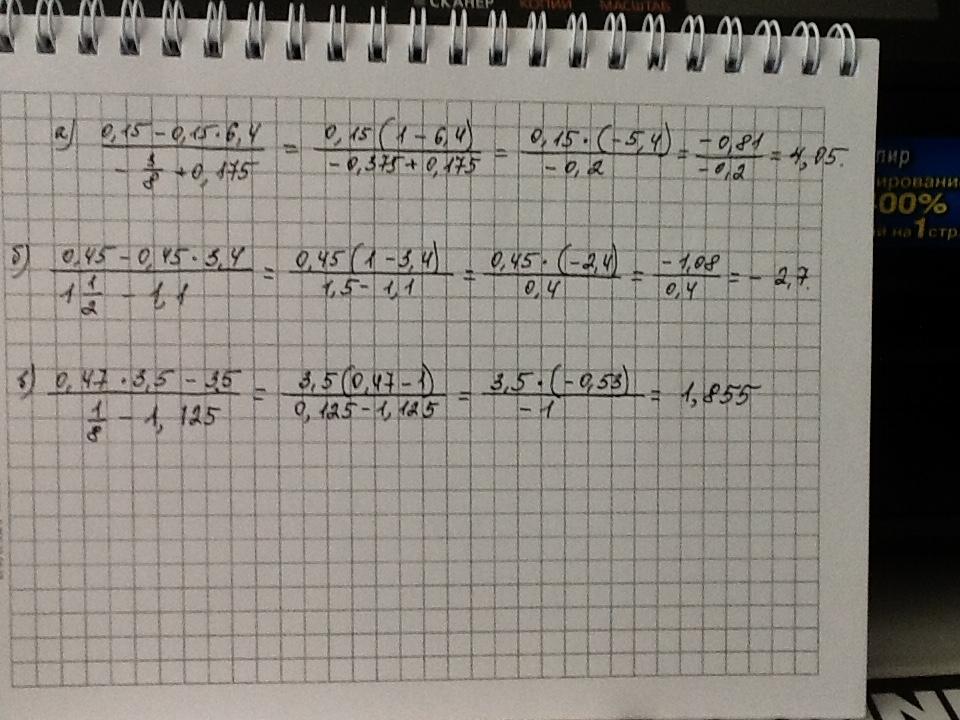 СКАНЕР КОПИИ МАСШТАБ
а) (0,15 - 0,15 · 6,4)/(- 3/8 + 0,175) = (0,15(1 - 6,4))/(- 0,375 + 0,175) = (0,15 · (-5,4))/(- 0,2) = (- 0,81)/(- 0,2) = 4,05.
б) (0,45 - 0,45 · 3,4)/(1 1/2 - 1,1) = (0,45(1 - 3,4))/(1,5 - 1,1) = (0,45 · (-2,4))/(0,4) = (- 1,08)/(0,4) = - 2,7.
в) (0,47 · 3,5 - 3,5)/(1/8 - 1,125) = (3,5(0,47 - 1))/(0,125 - 1,125) = (3,5 · (-0,53))/(- 1) = 1,855
пир
ировани
00%
й на 1 стр.